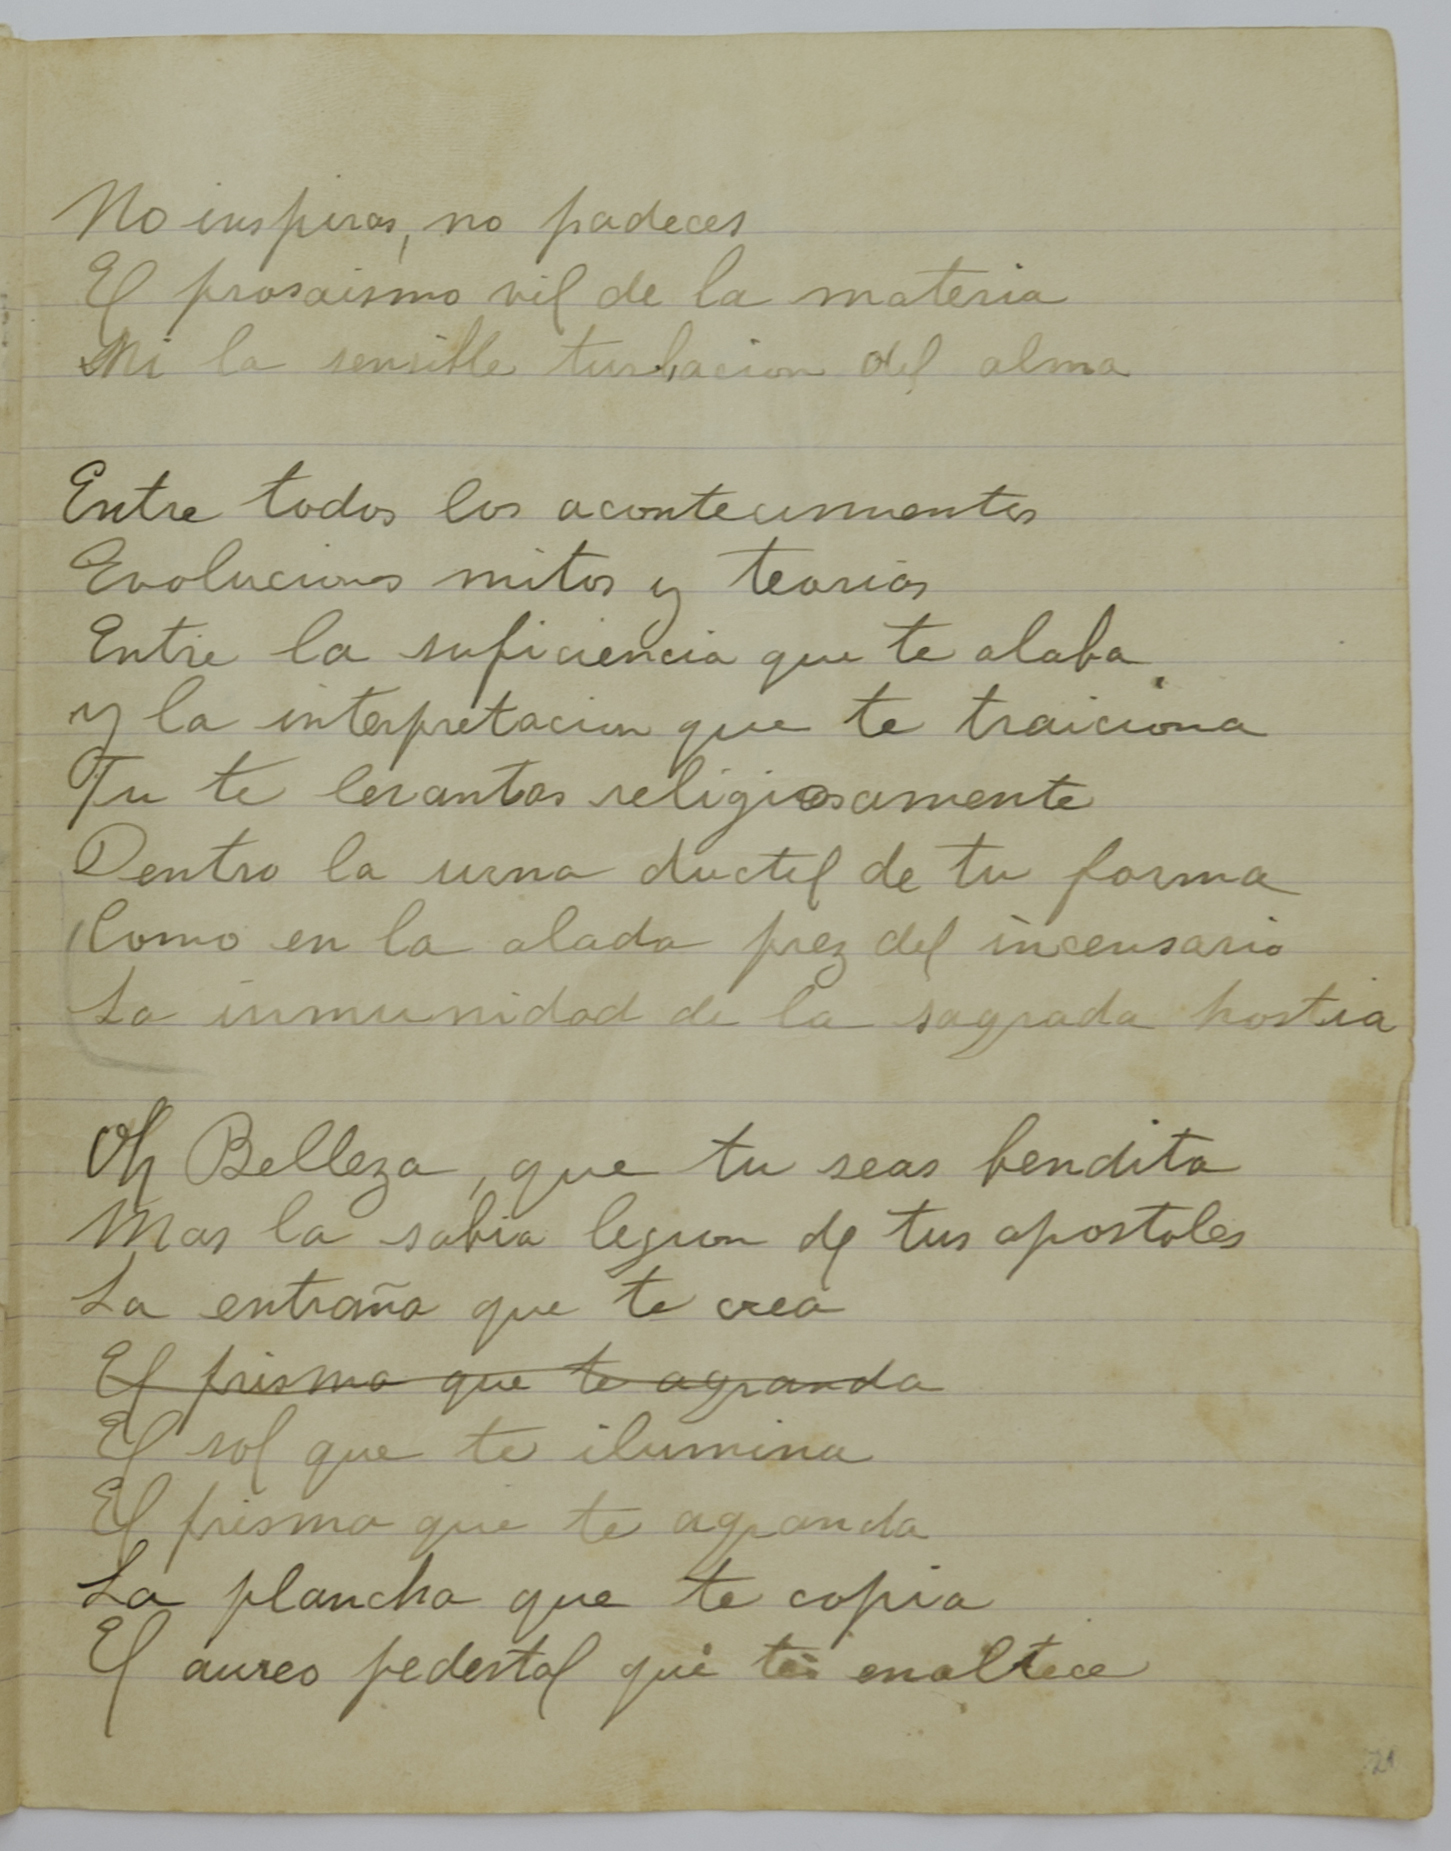 No inspiras, no padeces
El prosaismo vil de la materia
Ni la sensible turbacion del alma
Entre todos los acontecimientos
Evoluciones mitos y teorias
Entre la suficiencia que te alaba
y la interpretacion que te traiciona
Tu te levantas religiosamente
Dentro la urna ductil de tu forma
Como en la alada prez del incensario
La inmunidad de la sagrada hostia
Oh Belleza, que tu seas bendita
Mas la sabia legion de tus apostoles
La entraña que te crea
El prisma que te agranda
El sol que te ilumina
El prisma que te agranda
La plancha que te copia
El aureo pedestal que te enaltece
21